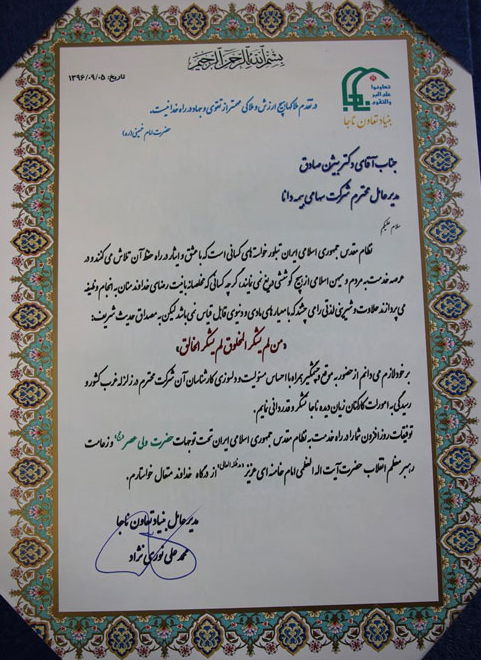 بسم الله الرحمن الرحیم
تاریخ: ۱۳۹۶/۰۹/۰۵
تعاونوا
علی البر
والتقوی
بنیاد تعاون ناجا
در تقدم ملاک‌ها هیچ ارزش و ملاکی مهمتر از تقوی و جهاد در راه خدا نیست.
حضرت امام خمینی (ره)
جناب آقای دکتر بیژن صادق
مدیرعامل محترم شرکت سهامی بیمه دانا
سلام علیکم
نظام مقدس جمهوری اسلامی ایران تبلور خواسته‌های کسانی است که با عشق و ایثار در راه حفظ آن تلاش می‌کنند و در
عرصه خدمت به مردم و میهن اسلامی از هیچ کوششی دریغ نمی‌نمایند، گرچه کسانی که مخلصانه با نیت رضای خداوند منان به انجام وظیفه
می‌پردازند حلاوت و شیرینی لذتی را می‌چشند که با معیارهای مادی و دنیوی قابل قیاس نمی‌باشد لیکن به مصداق حدیث شریف:
«من لم یشکر المخلوق لم یشکر الخالق»
بر خود لازم می‌دانم از حضور به موقع و چشمگیر همراه با احساس مسئولیت و دلسوزی کارشناسان آن شرکت محترم در زلزله غرب کشور و
رسیدگی به امورات کارکنان زیان دیده ناجا تشکر و قدردانی نمایم.
توفیقات روزافزون شما را در راه خدمت به نظام مقدس جمهوری اسلامی ایران تحت توجهات حضرت ولی عصر (عج) و زعامت
رهبر معظم انقلاب حضرت آیت اله العظمی امام خامنه‌ای عزیز (مدظله العالی) از درگاه خداوند متعال خواستارم.
مدیرعامل بنیاد تعاون ناجا
محمد علی نوری نژاد